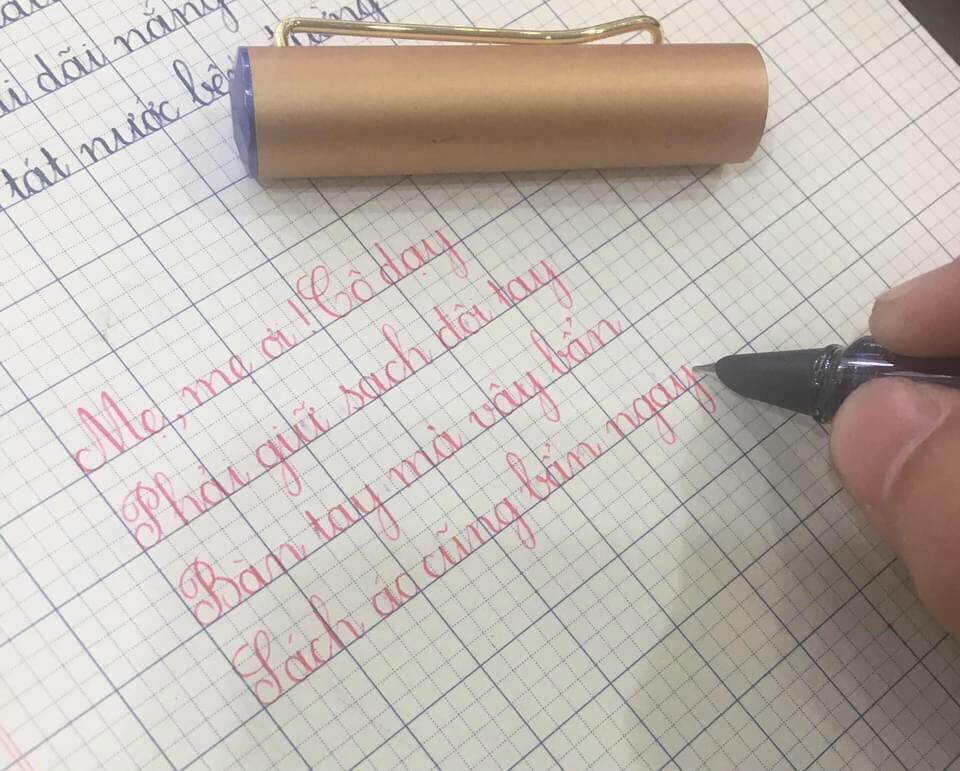 dãi nắng
tát nước bên
Mẹ, mẹ ơi! Cô dạy
Phải giữ sạch đôi tay
Bàn tay mà vây bẩn
Sách áo cũng bẩn ngay